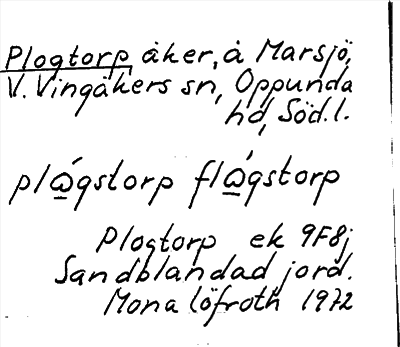 Plogtorp åker, å Marsjö,
V. Vingåkers sn, Oppunda
hd, Söd.l.
plώ̲gstorp flώ̲gstorp
Plogtorp ek 9F8j
Sandblandad jord.
Mona Löfroth 1972